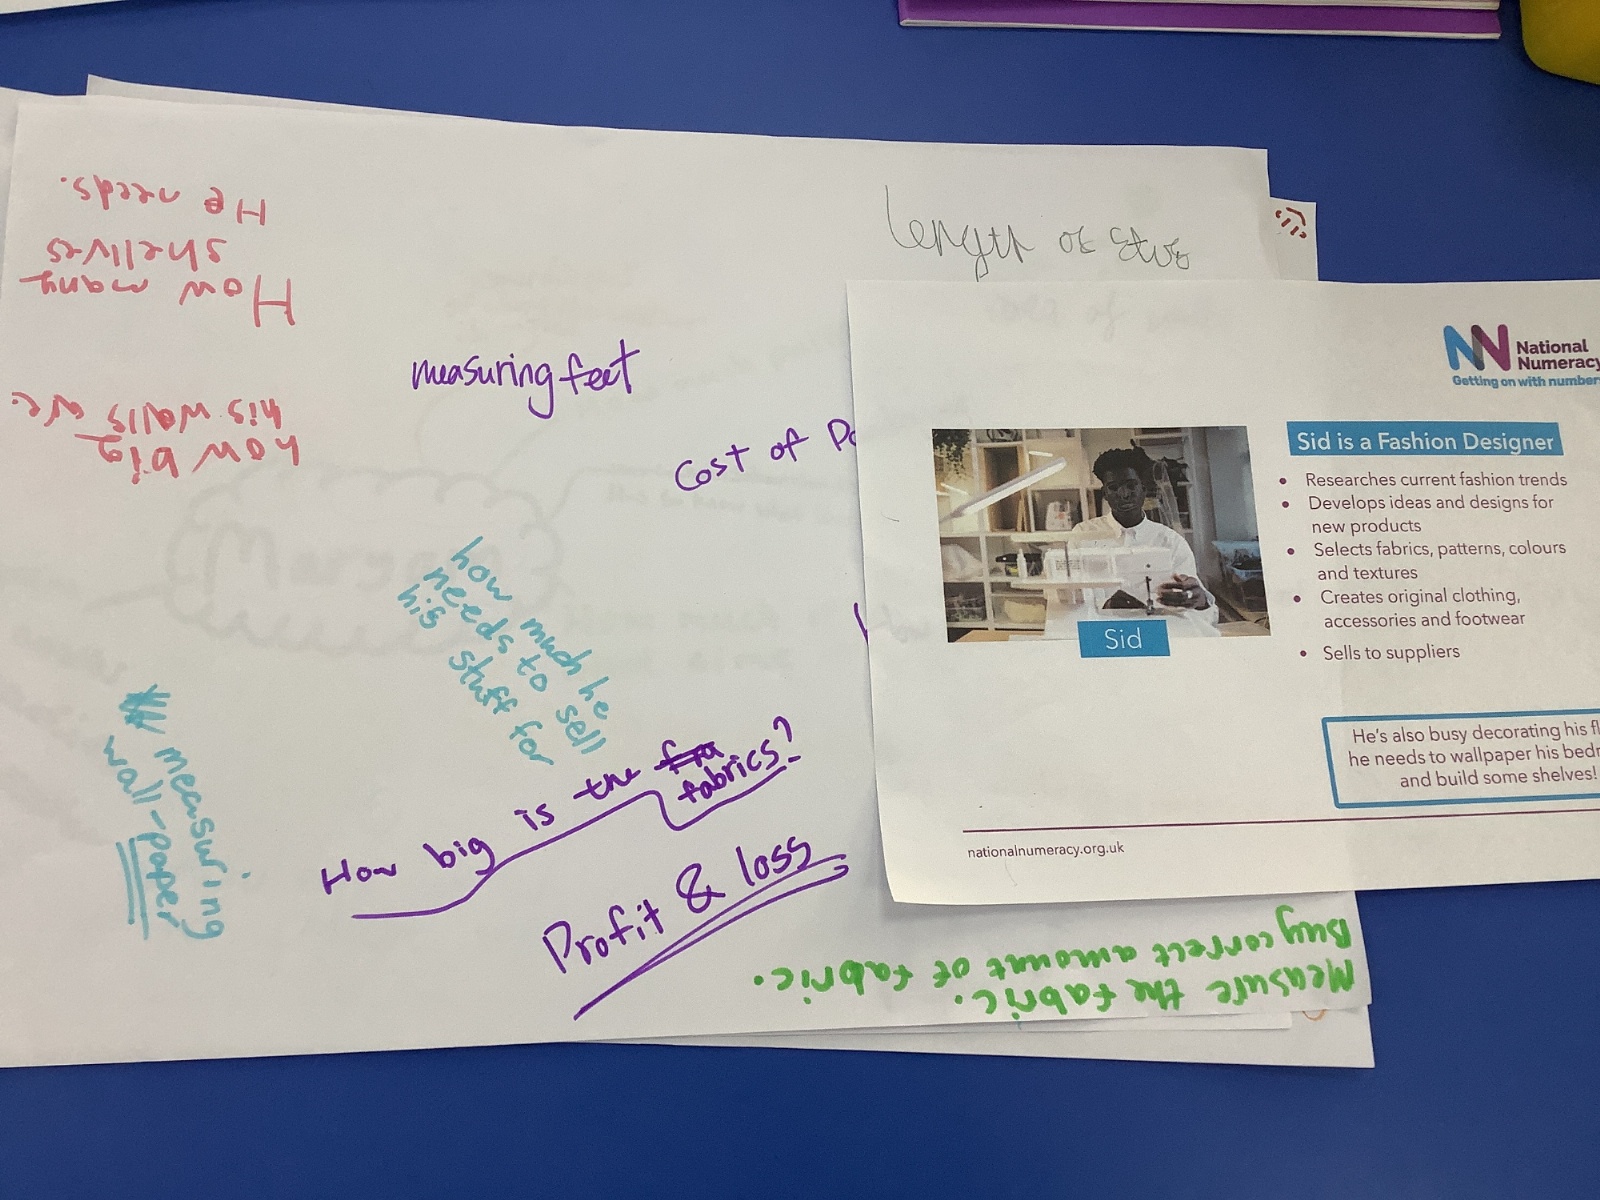 He needs.
How many
shellves
how big
his walls are.
length of
measuring feet
Cost of
how much he
needs to sell
his stuff for
measuring
wall-paper
How big is the
fabrics?
Profit & loss
Measure the fabric.
Buy correct amount of fabric.
National
Numeracy
Getting on with number
Sid is a Fashion Designer
• Researches current fashion trends
• Develops ideas and designs for
new products
• Selects fabrics, patterns, colours
and textures
• Creates original clothing,
accessories and footwear
• Sells to suppliers
Sid
He's also busy decorating his
he needs to wallpaper his
and build some shelves!
nationalnumeracy.org.uk